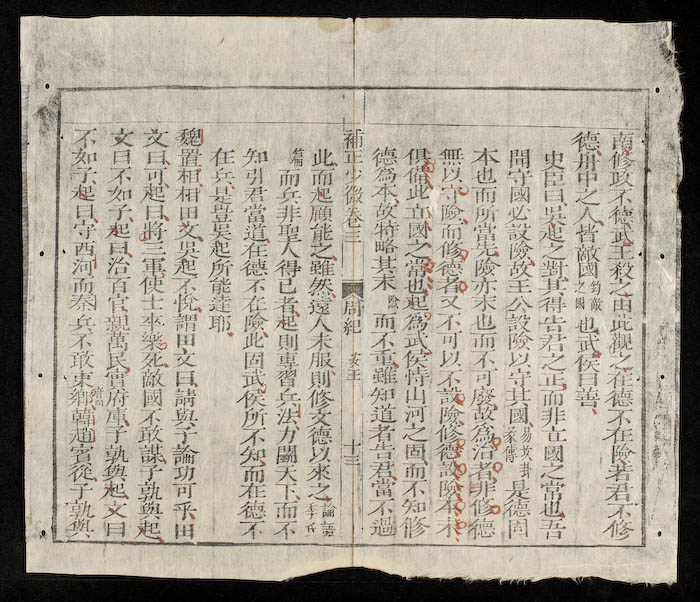 南修政不德武王殺之由此觀之在德不在險若君不修
德舟中之人皆敵國 均敵之國 也武侯曰善
史臣曰吳起之對其得告君之正而非立國之常也吾
聞守國必設險故王公設險以守其國 易坎卦彖傳 是德固
本也而所當先險亦末也而不可廢故為治者非修德
無以守險而修德者又不可以不設險修德設險本末
俱備此立國之常也起為武侯恃山河之固而不知修
德為本故特略其末 險 而不重雖知道者告君當不過
補正少微卷三 周紀 安王 十三
此而起顧能之雖然遠人未服則修文德以來之 論語季氏
篇 而兵非聖人得已者起則專習兵法力鬭天下而不
知引君當道在德不在險此固武侯所不知而在德不
在兵是豈吳起所能達耶
魏置相相田文吳起不悅謂田文曰請與子論功可乎田
文曰可起曰將三軍使士卒樂死敵國不敢謀子孰與起
文曰不如子起曰治百官親萬民實府庫子孰與起文曰
不如子起曰守西河而秦兵不敢東鄉韓趙賓從子孰與